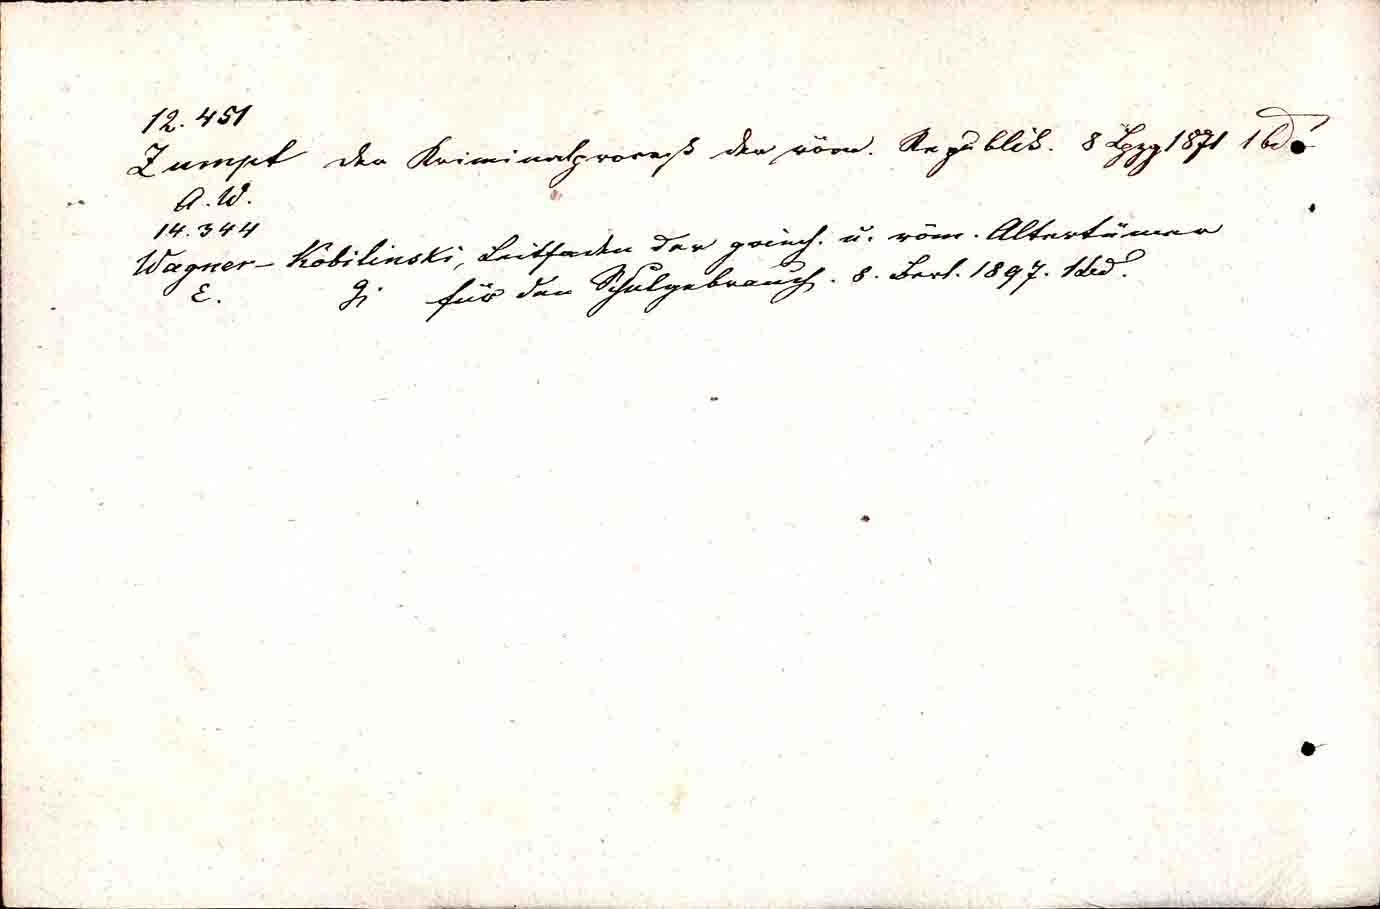 12.451
Zumpt der Kriminalprocess der röm. Republik. 8 Lpzg 1871 1 bd.
A. W.
14.344
Wagner - Kobilinski, Leitfaden der griech. u. röm. Altertümer
E. G. für den Schulgebrauch. 8. Berl. 1897. 1 bd.